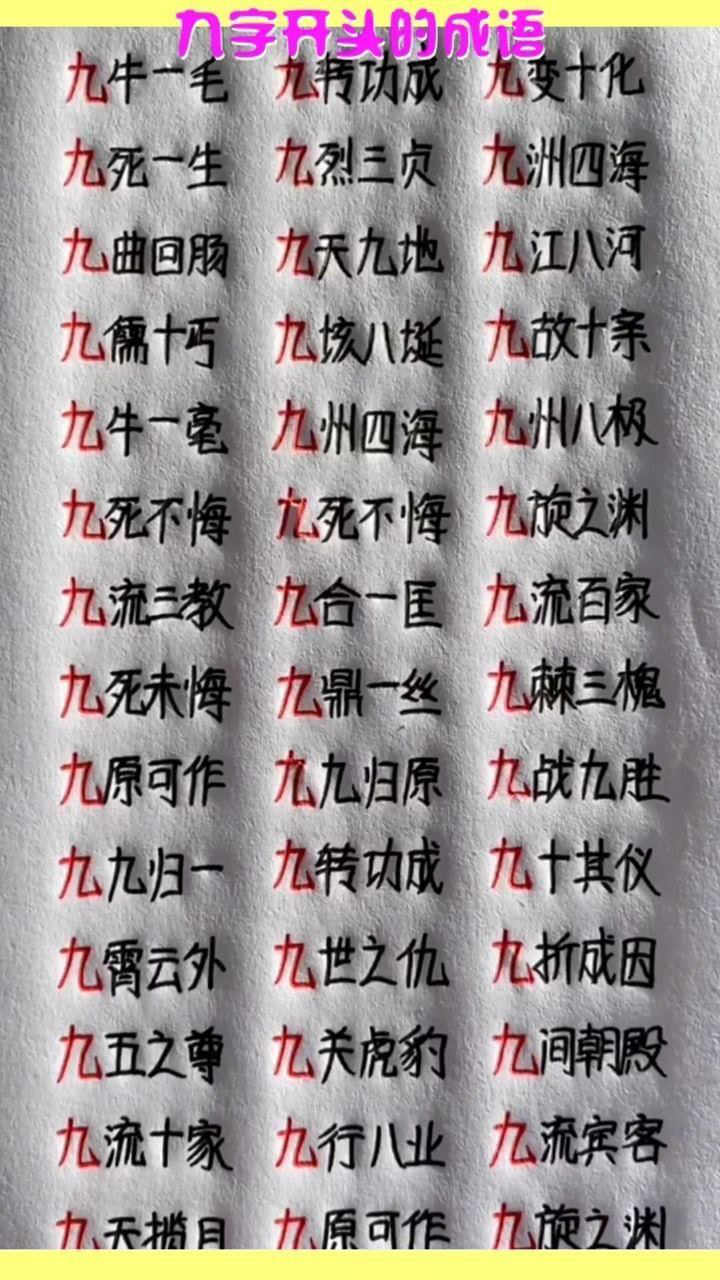 九字开头的成语
九牛一毛 九转功成 九变十化
九死一生 九烈三贞 九洲四海
九曲回肠 九天九地 九江八河
九儒十丐 九垓八埏 九故十亲
九牛一毫 九州四海 九州八极
九死不悔 九死不悔 九旋之渊
九流三教 九合一匡 九流百家
九死未悔 九鼎一丝 九棘三槐
九原可作 九九归原 九战九胜
九九归一 九转功成 九十其仪
九霄云外 九世之仇 九折成因
九五之尊 九关虎豹 九间朝殿
九流十家 九行八业 九流宾客
九天揽月 九原可作 九旋之渊